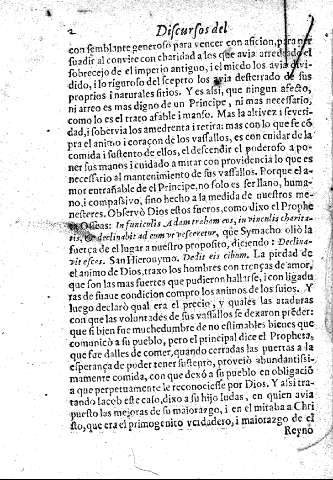 2 Discursos del
con semblante generoso para vencer con aficion, para per
suadir al convite con charidad a los que avia arredrado el
sobrecejo de el imperio antiguo, i el miedo los avia divi
dido, i lo riguroso del sceptro los avia desterrado de sus
proprios i naturales sitios. Y es assi, que ningun afecto,
ni arreo es mas digno de un Principe, ni mas necessario,
como lo es el trato afable i manso. Mas la altivez i severi
dad, i sobervia los amedrenta i retira: mas con lo que se co
pra el animo i coraçon de los vassallos, es con cuidar de la
comida i sustento de ellos, el descendir el poderoso a po
ner sus manos i cuidado a mirar con providencia lo que es
necessario al mantenimiento de sus vassallos. Porque el a-
mor entrañable de el Principe, no solo es ser llano, huma-
no, i compassivo, sino hecho a la medida de nuestros me-
nesteres. Observò Dios estos fueros, como dixo el Prophe
ta Oseas: In funiculis Adam traham eos, in vinculis charita-
tis, & declinabit ad eum ut vesceretur, que Symacho oliò la
fuerça de el lugar a nuestro proposito, diciendo: Declina-
vit esces. San Hieronymo. Dedit eis cibum. La piedad de
el animo de Dios, traxo los hombres con trenças de amor,
que son las mas fuertes que pudieron hallarse, i con ligadu
ras de suave condicion compro los animos de los suios. Y
luego declarò qual era el precio, y quales las ataduras
con que las voluntades de sus vassallos se dexaron préder:
que si bien fue muchedumbre de no estimables bienes que
comunicò a su pueblo, pero el principal dice el Propheta,
que fue dalles de comer, quando cerradas las puertas a la
esperança de poder tener sustéto, proveiò abundantissi-
mamente comida, con que dexò a su pueblo en obligació
a que perpetuamente le reconociesse por Dios. Y assi tra-
tando Iacob este caso, dixo a su hijo Iudas, en quien avia
puesto las mejoras de su maiorazgo, i en el mitaba a Chri
sto, que era el primogenito verdadero, i maiorazgo de el
Reyno